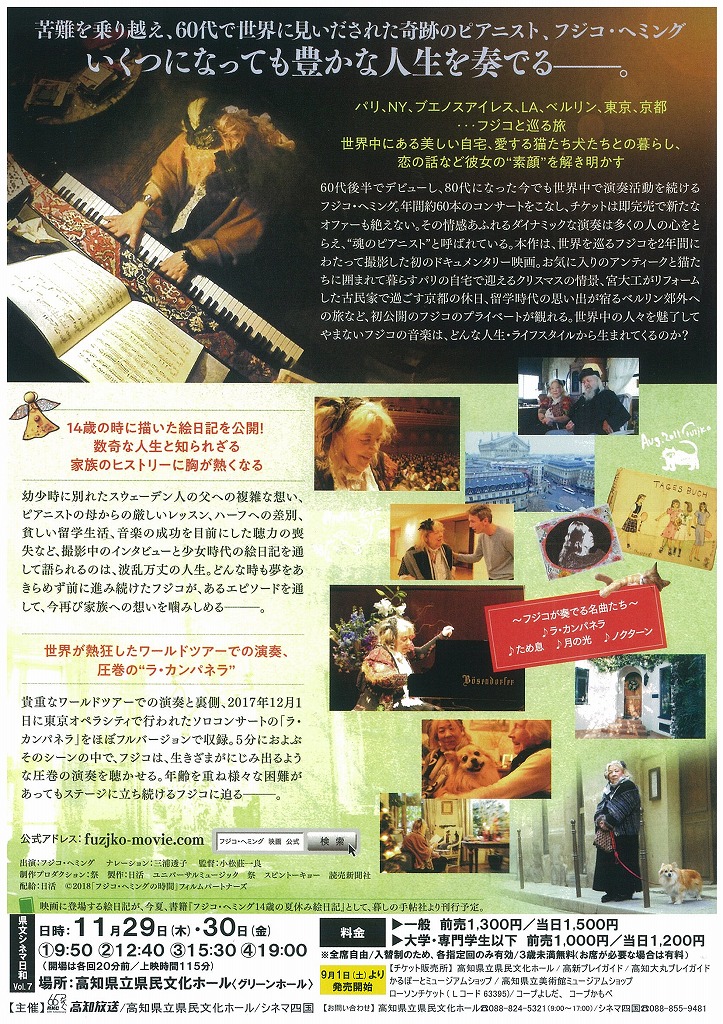 苦難を乗り越え、60代で世界に見いだされた奇跡のピアニスト、フジコ・ヘミング
いくつになっても豊かな人生を奏でる――。
パリ、NY、ブエノスアイレス、LA、ベルリン、東京、京都
・・・フジコと巡る旅
世界中にある美しい自宅、愛する猫たち犬たちとの暮らし、
恋の話など彼女の“素顔”を解き明かす
60代後半でデビューし、80代になった今でも世界中で演奏活動を続ける
フジコ・ヘミング。年間約60本のコンサートをこなし、チケットは即完売で新たな
オファーも絶えない。その情感あふれるダイナミックな演奏は多くの人の心をと
らえ、“魂のピアニスト”と呼ばれている。本作は、世界を巡るフジコを2年間に
わたって撮影した初のドキュメンタリー映画。お気に入りのアンティークと猫た
ちに囲まれて暮らすパリの自宅で迎えるクリスマスの情景、宮大工がリフォーム
した古民家で過ごす京都の休日、留学時代の思い出が宿るベルリン郊外へ
の旅など、初公開のフジコのプライベートが観れる。世界中の人々を魅了して
やまないフジコの音楽は、どんな人生・ライフスタイルから生まれてくるのか?
14歳の時に描いた絵日記を公開!
数奇な人生と知られざる
家族のヒストリーに胸が熱くなる
幼少時に別れたスウェーデン人の父への複雑な想い、
ピアニストの母からの厳しいレッスン、ハーフへの差別、
貧しい留学生活、音楽の成功を目前にした聴力の喪
失など、撮影中のインタビューと少女時代の絵日記を通
して語られるのは、波乱万丈の人生。どんな時も夢をあ
きらめず前に進み続けたフジコが、あるエピソードを通
して、今再び家族への想いを噛みしめる――。
Aug.2011 Fuzjko
TAGES BUCH
〜フジコが奏でる名曲たち〜
♪ラ・カンパネラ
♪ため息 ♪月の光 ♪ノクターン
Bösendorfer
世界が熱狂したワールドツアーでの演奏、
圧巻の“ラ・カンパネラ”
貴重なワールドツアーでの演奏と裏側、2017年12月1
日に東京オペラシティで行われたソロコンサートの「ラ・
カンパネラ」をほぼフルバージョンで収録。5分におよぶ
そのシーンの中で、フジコは、生きざまがにじみ出るよう
な圧巻の演奏を聴かせる。年齢を重ね様々な困難が
あってもステージに立ち続けるフジコに迫る――。
公式アドレス:fuzjko-movie.com
フジコ・ヘミング 映画 公式 検索
出演:フジコ・ヘミング ナレーション:三浦透子 監督:小松莊一良
制作プロダクション:祭 製作:日活 ユニバーサルミュージック 祭 スピントーキョー 読売新聞社
配給:日活 ©2018「フジコ・ヘミングの時間」フィルムパートナーズ
映画に登場する絵日記が、今夏、書籍『フジコ・ヘミング14歳の夏休み絵日記』として、暮しの手帖社より刊行予定。
県文シネマ日和 Vol.7
日時:11月29日(木)・30日(金)
①9:50 ②12:40 ③15:30 ④19:00
(開場は各回20分前/上映時間115分)
場所:高知県立県民文化ホール〈グリーンホール〉
料金
▶一般 前売1,300円/当日1,500円
▶大学・専門学生以下 前売1,000円/当日1,200円
※全席自由/入替制のため、各指定回のみ有効/3歳未満無料(お席が必要な場合は有料)
9月1日(土)より
発売開始
【チケット販売所】高知県立県民文化ホール/高新プレイガイド/高知大丸プレイガイド
かるぽーとミュージアムショップ/高知県立美術館ミュージアムショップ
ローソンチケット(Lコード63395)/コープよしだ、コープかもべ
【主催】高知放送/高知県立県民文化ホール/シネマ四国
【お問い合わせ】高知県立県民文化ホール☎088-824-5321(9:00〜17:00)/シネマ四国☎088-855-9481